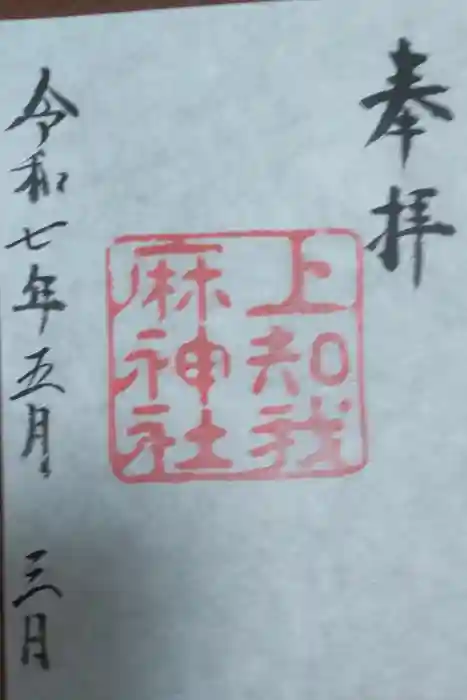 奉拝
上知我
麻神社
令和七年五月三日